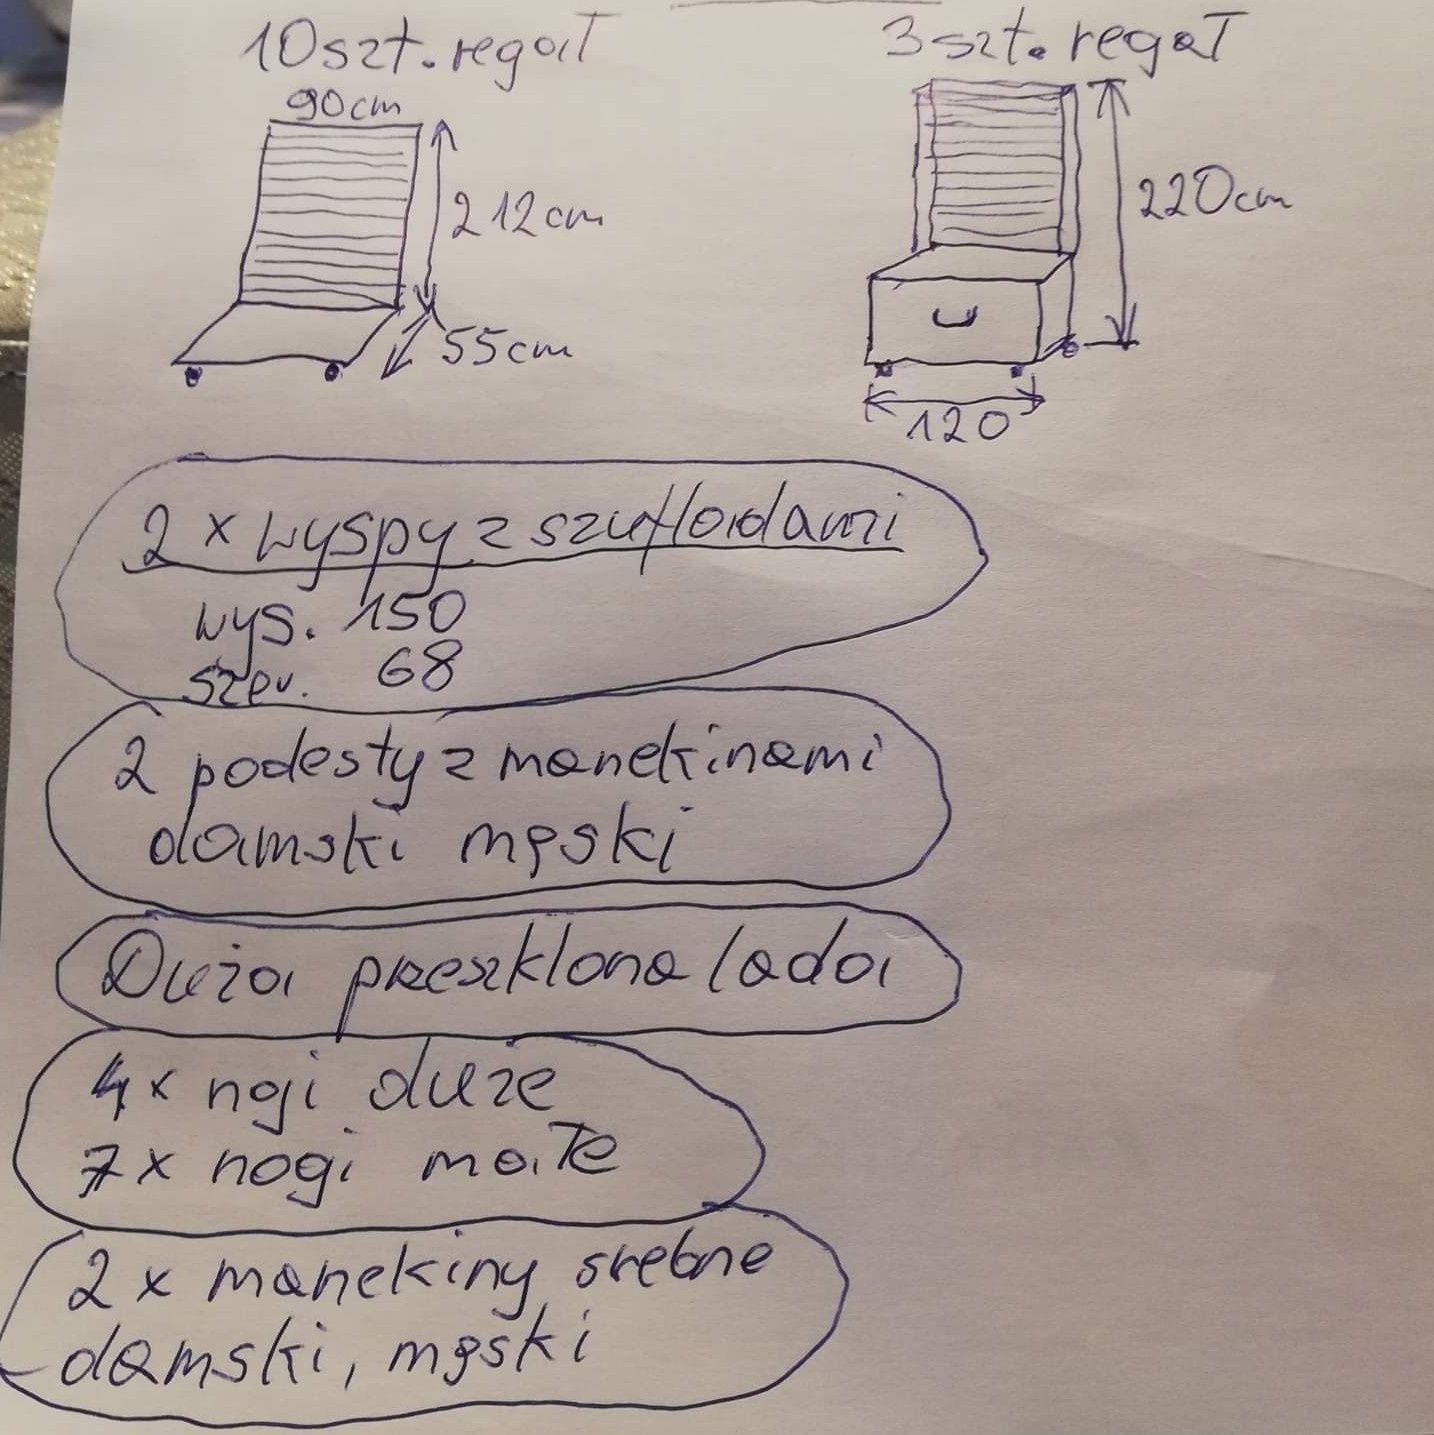 10szt. regał
90cm
212cm
55cm
3szt. regał
220cm
120
2 x wyspy z szufladami
wys. 150
szer. 68
2 podesty z manekinami
damski męski
Duża przeszklona lada
4x nogi duże
7x nogi małe
2 x manekiny srebne
damski, męski